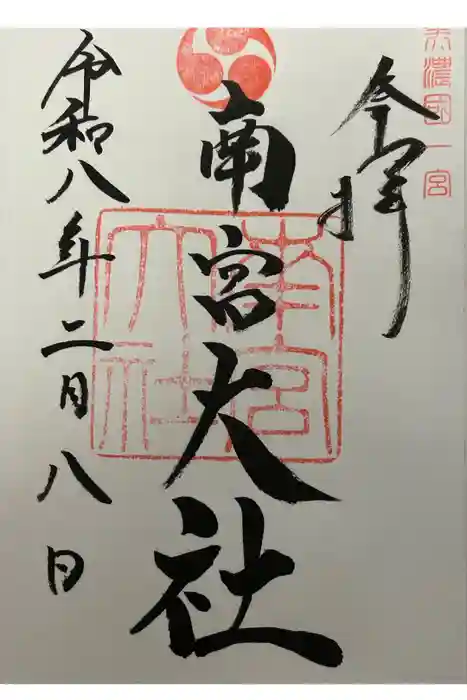 美濃國一宮
参拝
南宮大社
南宮
大社
令和八年二月八日